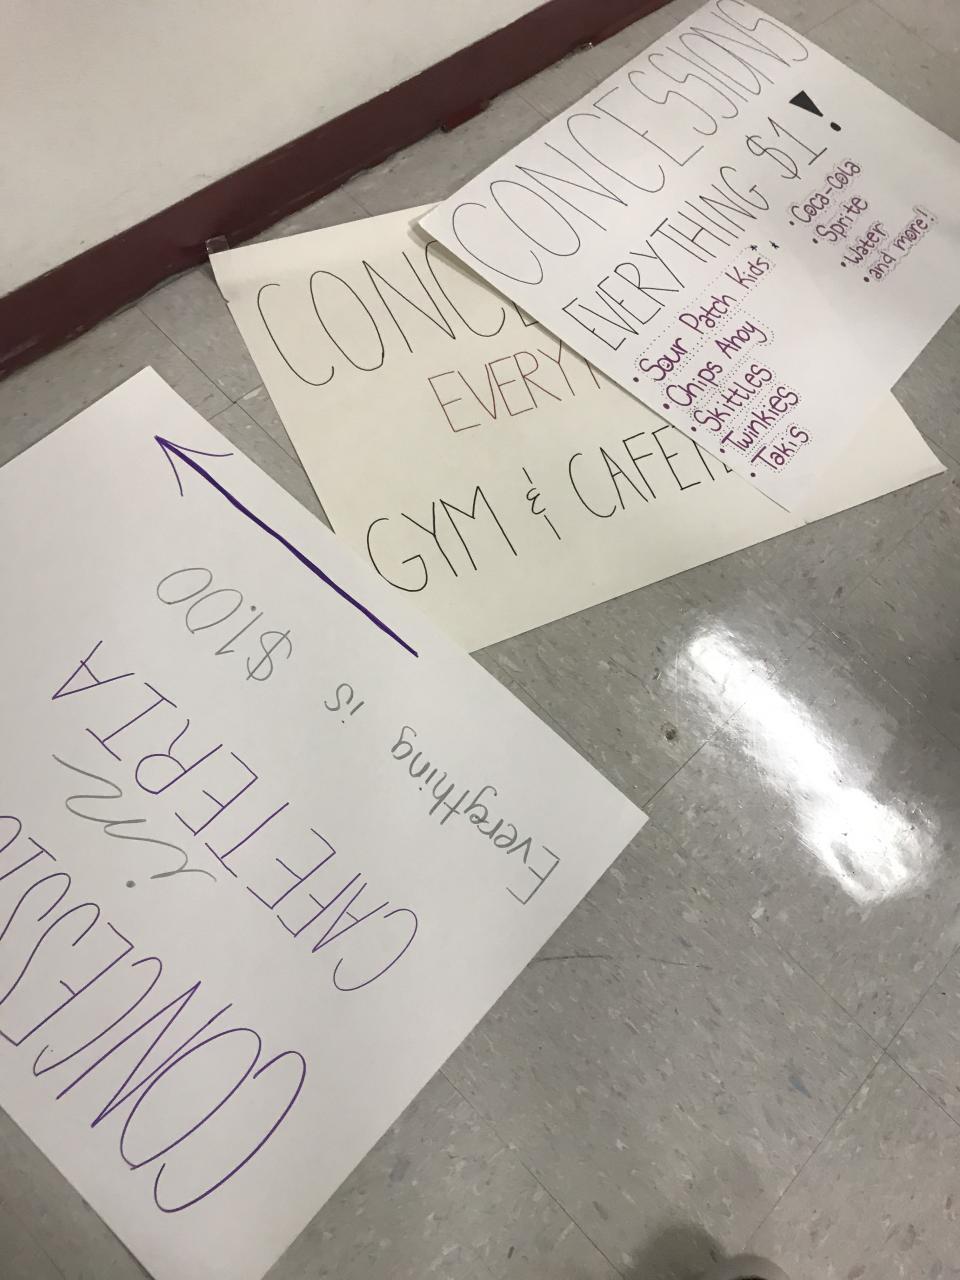 CONCESSIONS
EVERYTHING $1!
• Sour Patch Kids
• Chips Ahoy
• Skittles
• Twinkies
• Takis
• Coca-Cola
• Sprite
• Water
• and more!
CONCE
EVERY
GYM & CAFETE
CONCESSIO
in
CAFETERIA
Everything is $1.00